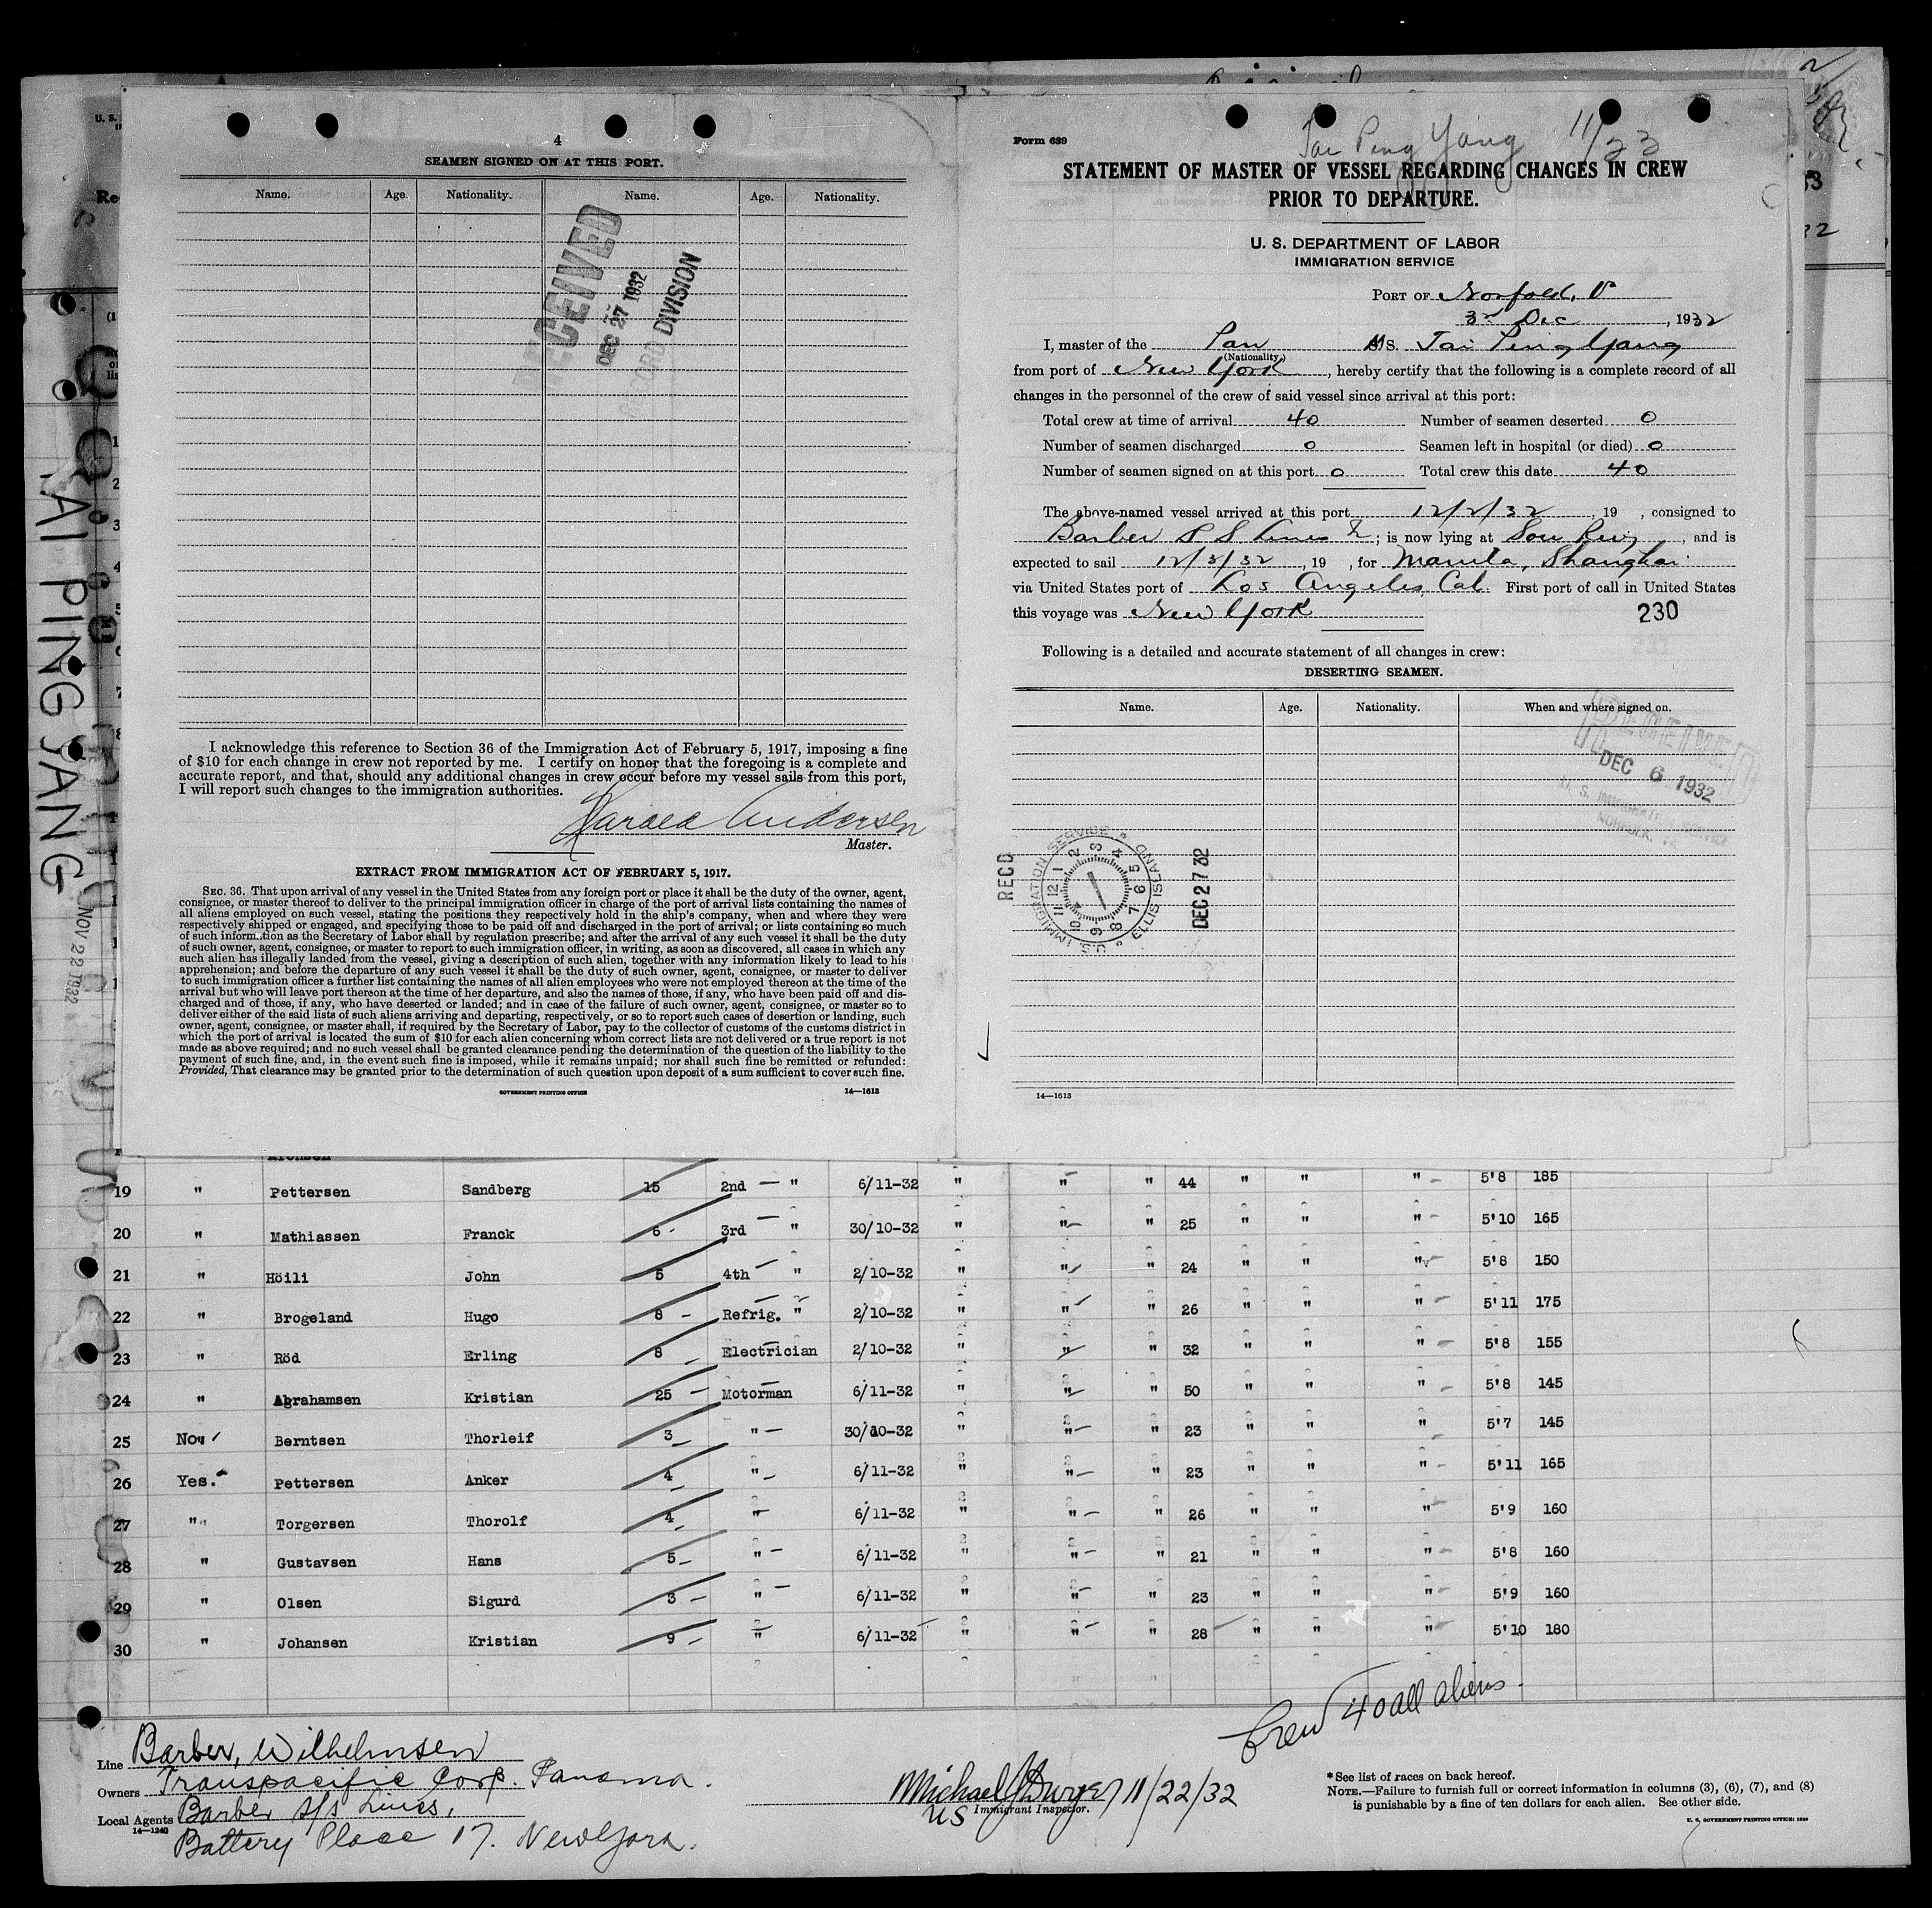 4
SEAMEN SIGNED ON AT THIS PORT.
Name. Age. Nationality. Name. Age. Nationality.
RECEIVED
DEC 27 1932
RECORD DIVISION
I acknowledge this reference to Section 36 of the Immigration Act of February 5, 1917, imposing a fine
of $10 for each change in crew not reported by me. I certify on honor that the foregoing is a complete and
accurate report, and that, should any additional changes in crew occur before my vessel sails from this port,
I will report such changes to the immigration authorities.
Harald Andersen
Master.
EXTRACT FROM IMMIGRATION ACT OF FEBRUARY 5, 1917.
SEC. 36. That upon arrival of any vessel in the United States from any foreign port or place it shall be the duty of the owner, agent,
consignee, or master thereof to deliver to the principal immigration officer in charge of the port of arrival lists containing the names of
all aliens employed on such vessel, stating the positions they respectively hold in the ship's company, when and where they were
respectively shipped or engaged, and specifying those to be paid off and discharged in the port of arrival; or lists containing so much
of such information as the Secretary of Labor shall by regulation prescribe; and after the arrival of any such vessel it shall be the duty
of such owner, agent, consignee, or master to report to such immigration officer, in writing, as soon as discovered, all cases in which any
such alien has illegally landed from the vessel, giving a description of such alien, together with any information likely to lead to his
apprehension; and before the departure of any such vessel it shall be the duty of such owner, agent, consignee, or master to deliver
to such immigration officer a further list containing the names of all alien employees who were not employed thereon at the time of the
arrival but who will leave port thereon at the time of her departure, and also the names of those, if any, who have been paid off and dis-
charged and of those, if any, who have deserted or landed; and in case of the failure of such owner, agent, consignee, or master so to
deliver either of the said lists of such aliens arriving and departing, respectively, or so to report such cases of desertion or landing, such
owner, agent, consignee, or master shall, if required by the Secretary of Labor, pay to the collector of customs of the customs district in
which the port of arrival is located the sum of $10 for each alien concerning whom correct lists are not delivered or a true report is not
made as above required; and no such vessel shall be granted clearance pending the determination of the question of the liability to the
payment of such fine, and, in the event such fine is imposed, while it remains unpaid; nor shall such fine be remitted or refunded:
Provided, That clearance may be granted prior to the determination of such question upon deposit of a sum sufficient to cover such fine.
GOVERNMENT PRINTING OFFICE 14—1613
Form 689
Tai Ping Yang 11/23
STATEMENT OF MASTER OF VESSEL REGARDING CHANGES IN CREW
PRIOR TO DEPARTURE.
U. S. DEPARTMENT OF LABOR
IMMIGRATION SERVICE
PORT OF Norfolk, Va
3rd Dec, 1932
I, master of the Pan M/S. Tai Ping Yang
(Nationality)
from port of New York, hereby certify that the following is a complete record of all
changes in the personnel of the crew of said vessel since arrival at this port:
Total crew at time of arrival 40 Number of seamen deserted 0
Number of seamen discharged 0 Seamen left in hospital (or died) 0
Number of seamen signed on at this port 0 Total crew this date 40
The above-named vessel arrived at this port 12/2/32, 19 , consigned to
Barber S S Lines; is now lying at Sou, and is
expected to sail 12/3/32, 19 , for Manila, Shanghai
via United States port of Los Angeles, Cal. First port of call in United States
this voyage was New York 230
Following is a detailed and accurate statement of all changes in crew:
DESERTING SEAMEN.
Name. Age. Nationality. When and where signed on.
RECEIVED
DEC 6 1932
U. S. IMMIGRATION SERVICE
NORFOLK, VA
RECD
U.S. IMMIGRATION SERVICE ELLIS ISLAND
1 2 3 4 5 6 7 8 9 10 11 12
DEC 27 32
14—1613
AI PING YANG
NOV 22 1932
19 " Pettersen Sandberg 15 2nd — " 6/11-32 " " " 44 " " " 5'8 185
20 " Mathiassen Franck 6 3rd " 30/10-32 " " " 25 " " " 5'10 165
21 " Höili John 5 4th " 2/10-32 " " " 24 " " " 5'8 150
22 " Brogeland Hugo 8 Refrig. " 2/10-32 " " " 26 " " " 5'11 175
23 " Röd Erling 8 Electrician 2/10-32 " " " 32 " " " 5'8 155
24 " Abrahamsen Kristian 25 Motorman 6/11-32 " " " 50 " " " 5'8 145
25 No Berntsen Thorleif 3 " 30/10-32 " " " 23 " " " 5'7 145
26 Yes. Pettersen Anker 4 " 6/11-32 " " " 23 " " " 5'11 165
27 " Torgersen Thorolf 4 " 6/11-32 " " " 26 " " " 5'9 160
28 " Gustavsen Hans 5 " 6/11-32 " " " 21 " " " 5'8 160
29 " Olsen Sigurd 3 " 6/11-32 " " " 23 " " " 5'9 160
30 " Johansen Kristian 9 " 6/11-32 " " " 28 " " " 5'10 180
Crew 40 all aliens.
Line Barber, Wilhelmsen
Owners Transpacific Corp. Panama.
Local Agents Barber S/S Lines,
14—1240
Battery Place 17. New York.
Michael J Dwyer 11/22/32
US Immigrant Inspector.
*See list of races on back hereof.
NOTE.—Failure to furnish full or correct information in columns (3), (6), (7), and (8)
is punishable by a fine of ten dollars for each alien. See other side.